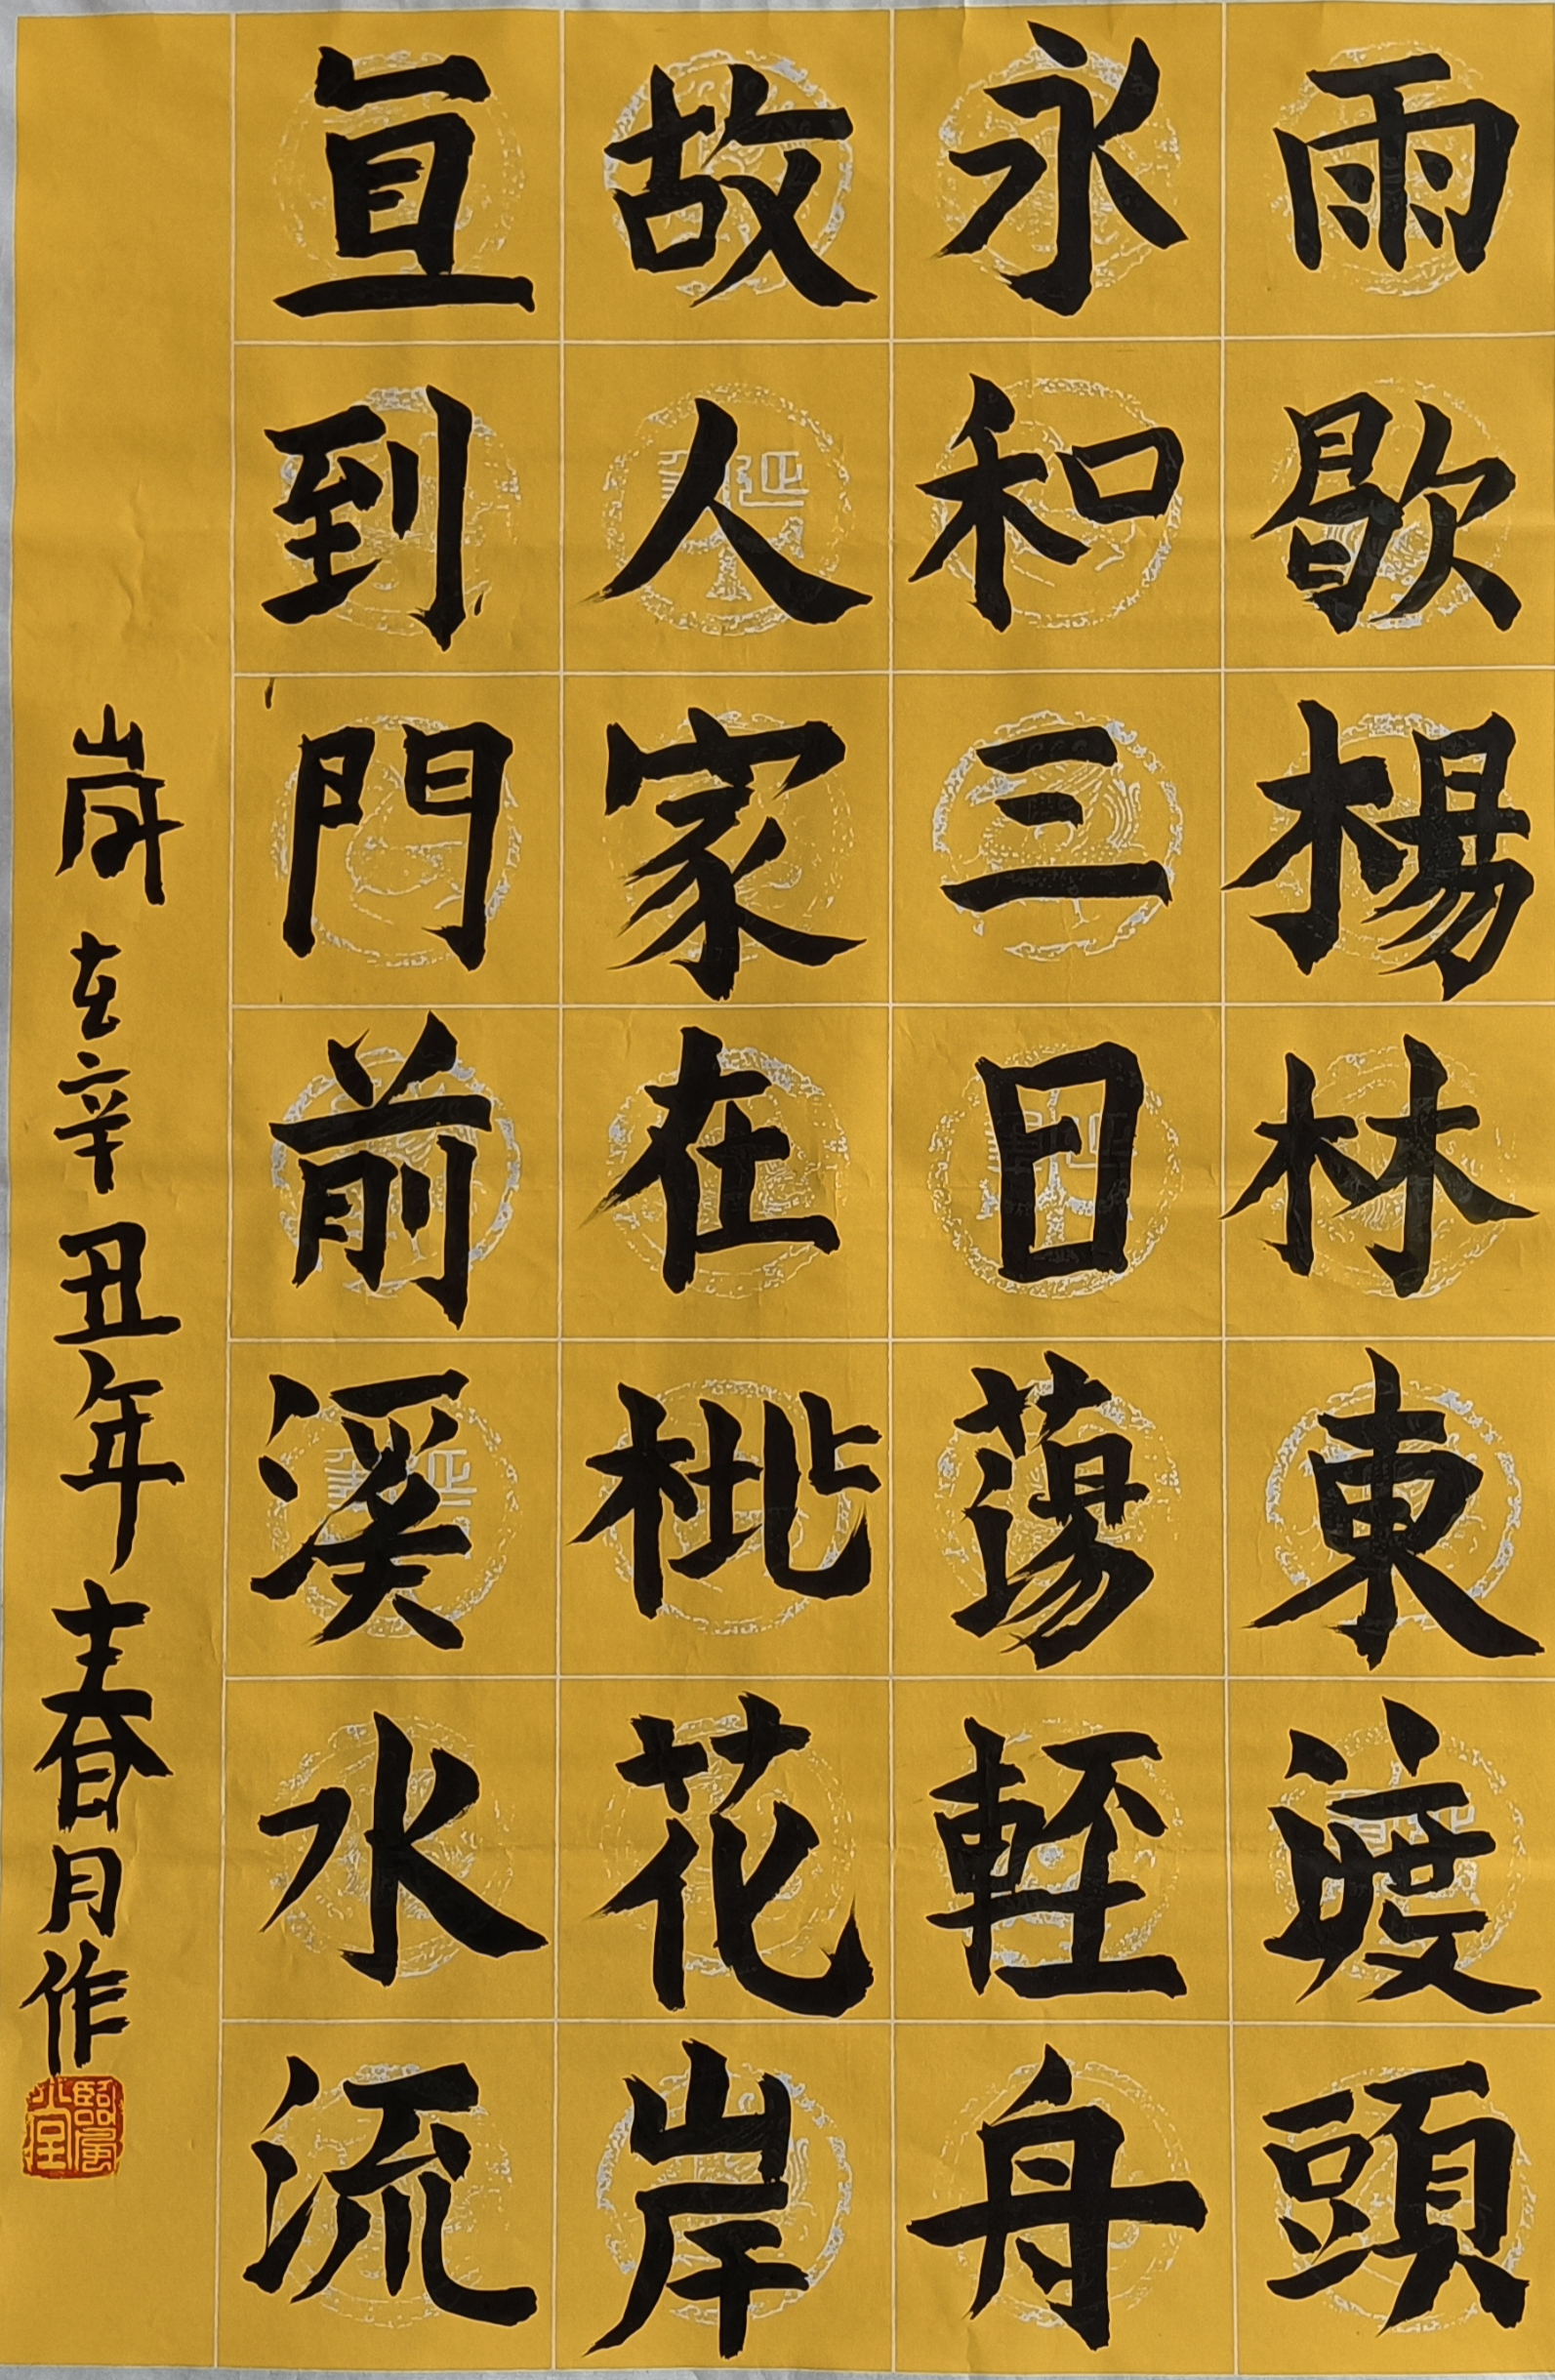 雨歇楊林東渡頭
永和三日蕩輕舟
故人家在桃花岸
直到門前溪水流
歲在辛丑年春月作